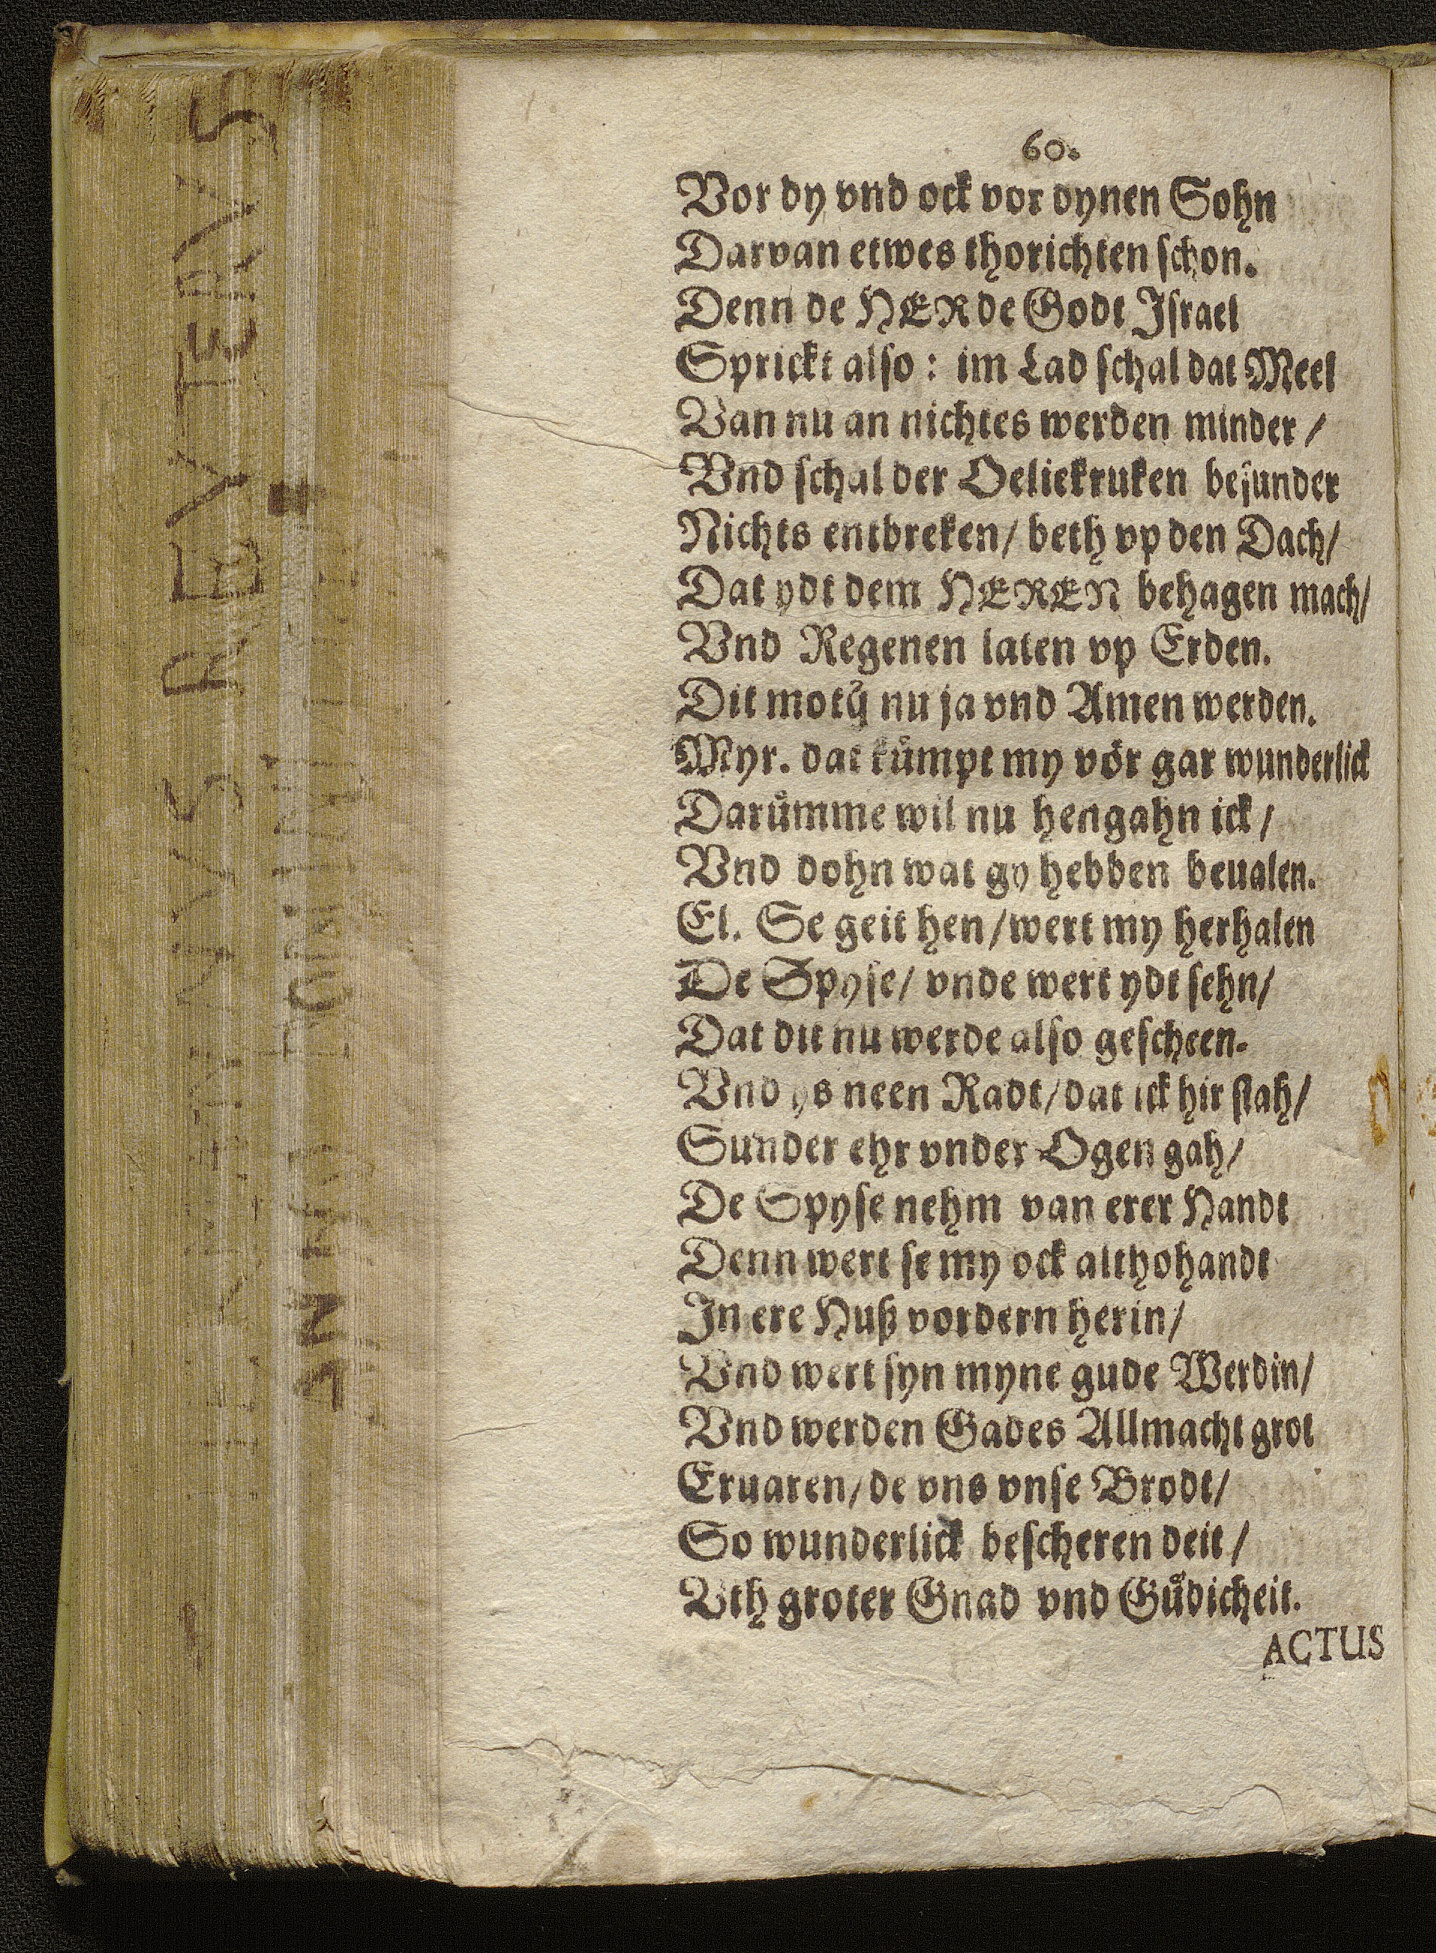 60.
Vor dy vnd ock vor dynen Sohn
Darvan etwes thorichten schon.
Denn de HERde Godt Israel
Sprickt also: im Lad schal dat Meel
Van nu an nichtes werden minder/
Vnd schal der Oeliekruken besunder
Nichts entbreken/ beth vp den Dach/
Dat ydt dem HEREN behagen mach/
Vnd Regenen laten vp Erden.
Dit moth nu ja vnd Amen werden.
Myr. dat kůmpt my vör gar wunderlick
Darůmme wil nu hengahn ick/
Vnd dohn wat gy hebben beualen.
El. Se geit hen/wert my herhalen
De Spyse/ vnde wert ydt sehn/
Dat dit nu werde also gescheen.
Vnd ys neen Radt/dat ick hir stah/
Sunder ehr vnder Ogen gah/
De Spyse nehm van erer Handt
Denn wert se my ock althohandt
In ere Huß vordern herin/
Vnd wert syn myne gude Werdin/
Vnd werden Gades Allmacht grot
Eruaren/de vns vnse Brodt/
So wunderlick bescheren deit/
Vth groter Gnad vnd Gůdicheit.
ACTUS
REVTERVS
ANNO DOMINI